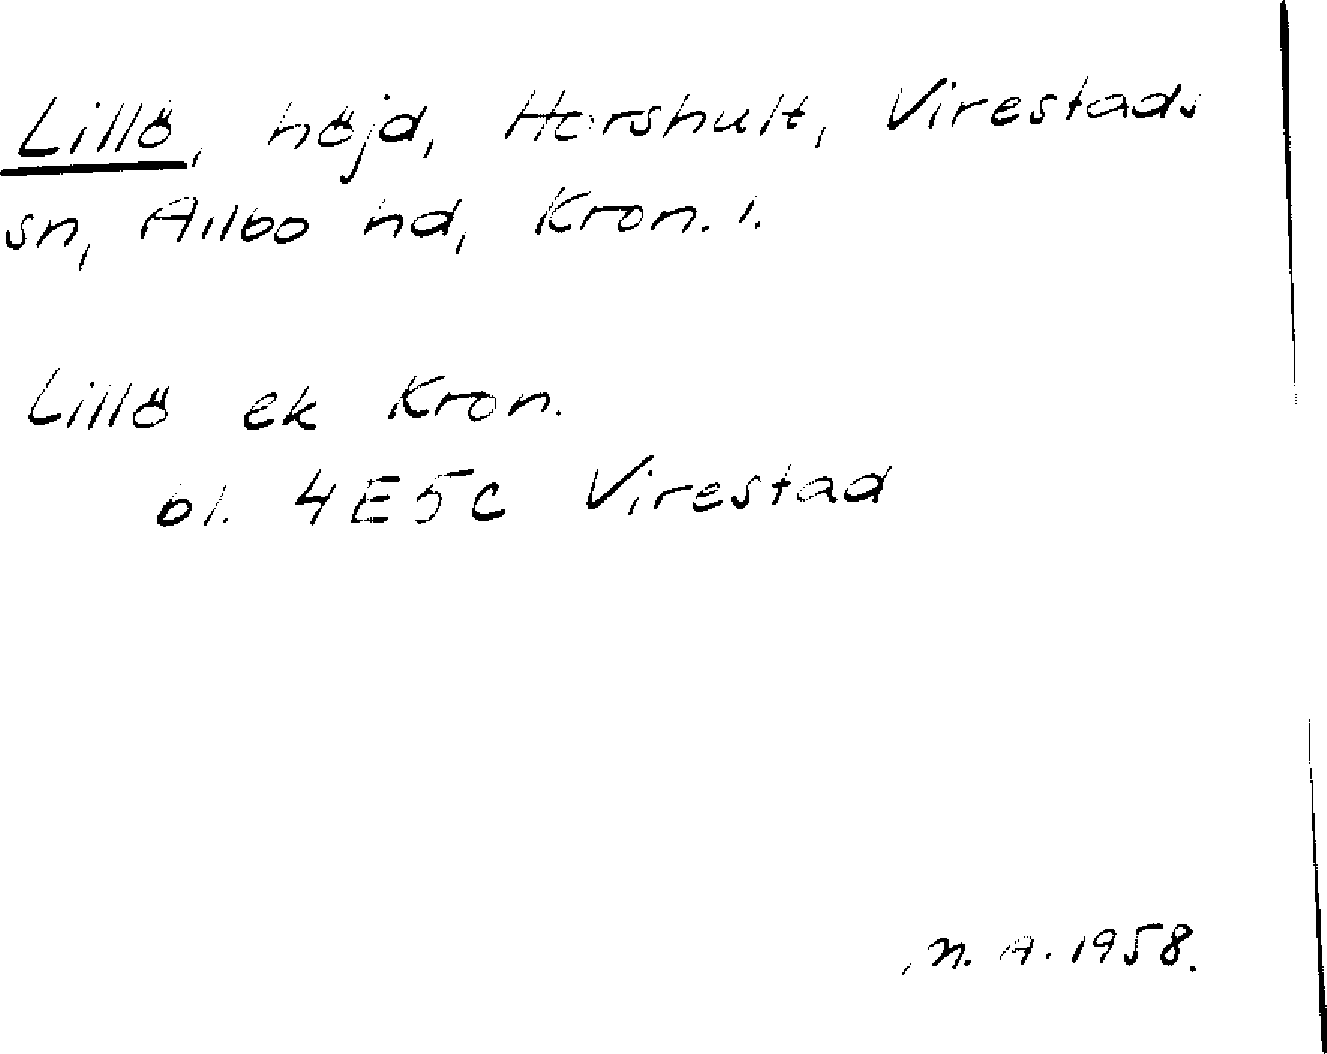 Lillö, höjd, Horshult, Virestads
sn, Allbo hd, Kron. l.
Lillö ek Kron.
bl. 4E5c Virestad
N. A. 1958.